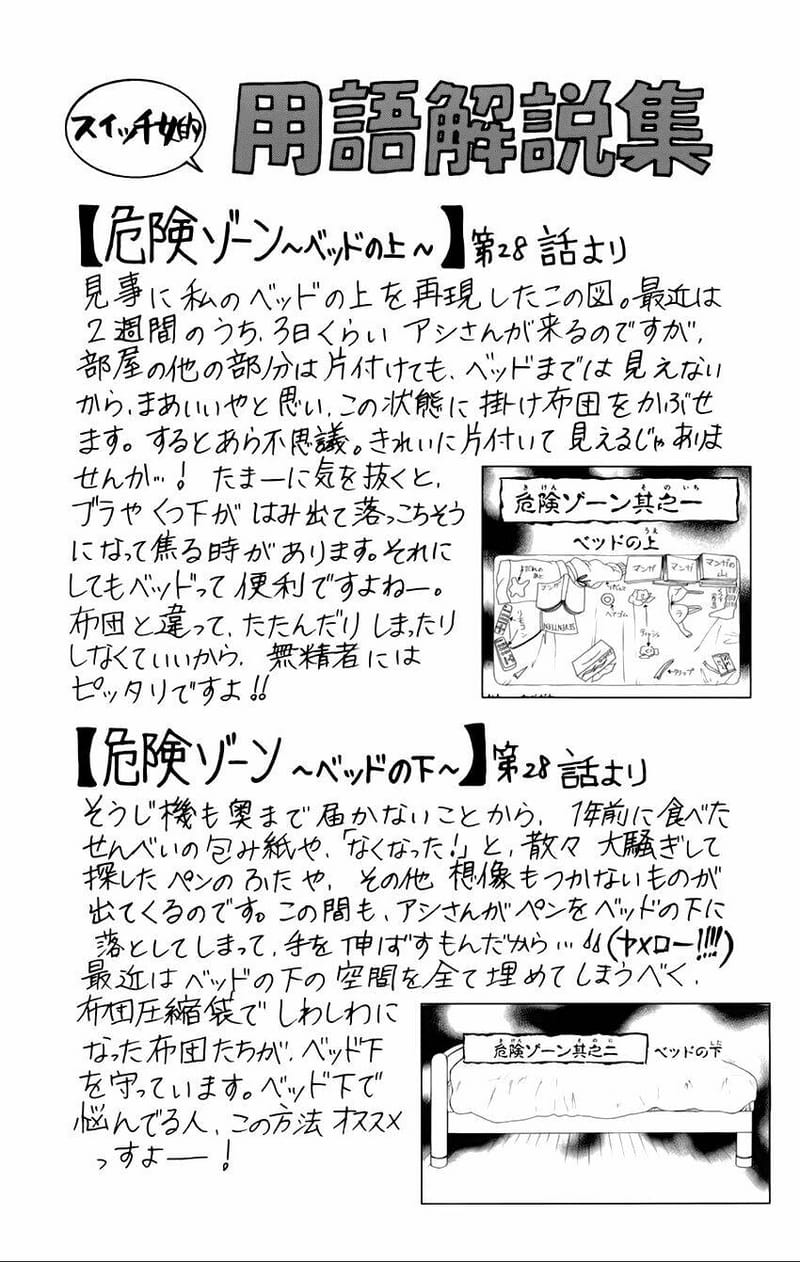 スイッチ女的
用語解説集
【危険ゾーン~ベッドの上~】第28話より
見事に私のベッドの上を再現したこの図。最近は
2週間のうち、3日くらい アシさんが来るのですが、
部屋の他の部分は片付けても、ベッドまでは見えない
から、まあいいやと思い、この状態に掛け布団をかぶせ
ます。するとあら不思議。きれいに片付いて見えるじゃありま
せんか…! たまーに気を抜くと、
ブラやくつ下がはみ出て落っこちそう
になって焦る時があります。それに
してもベッドって便利ですよねー。
布団と違って、たたんだりしまったり
しなくていいから、無精者には
ピッタリですよ!!
きけん その いち
危険ゾーン其之一
うえ
ベッドの上
マンガ
マンガ
マンガ
マンガの山
リモコン
SEVENTEEN
ヘアゴム
ティッシュ
クリップ
【危険ゾーン ~ベッドの下~】第28話より
そうじ機も奥まで届かないことから、1年前に食べた
せんべいの包み紙や、「なくなった!」と、散々 大騒ぎして
探したペンのふたや、その他 想像もつかないものが
出てくるのです。この間も、アシさんがペンをベッドの下に
落としてしまって、手を伸ばすもんだから…(ヤメロー!!!!)
最近はベッドの下の空間を全て埋めてしまうべく、
布団圧縮袋でしわしわに
なった布団たちが、ベッド下
を守っています。ベッド下で
悩んでる人、この方法オススメ
っすよ――!
きけん その に
危険ゾーン其之二
した
ベッドの下